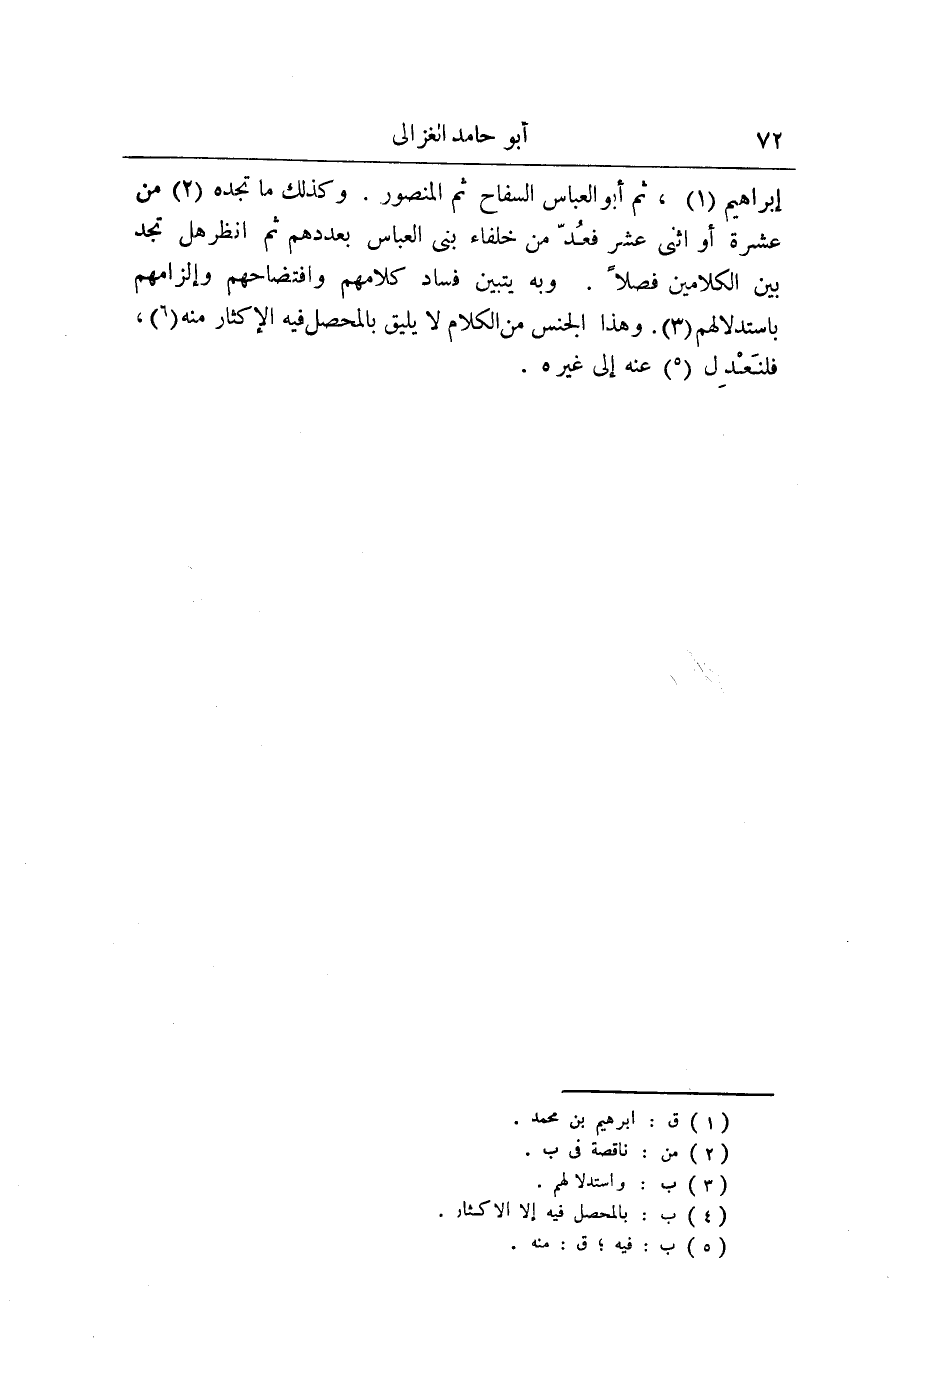 ٧٢
أبو حامد الغزالى
إبراهيم (١) ، ثم أبو العباس السفاح ثم المنصور . وكذلك ما تجده (٢) من
عشرة أو اثنى عشر فعُدّ من خلفاء بنى العباس بعددهم ثم انظر هل تجد
بين الكلامين فصلاً . وبه يتبين فساد كلامهم وافتضاحهم وإلزامهم
باستدلالهم (٣) . وهذا الجنس من الكلام لا يليق بالمحصل فيه الإكثار منه (٦) ،
فلنَعْدِل (٥) عنه إلى غيره .
(١) ق : ابرهيم بن محمد .
(٢) من : ناقصة فى ب .
(٣) ب : واستدلالهم .
(٤) ب : بالمحصل فيه إلا الاكثار .
(٥) ب : فيه ؛ ق : منه .